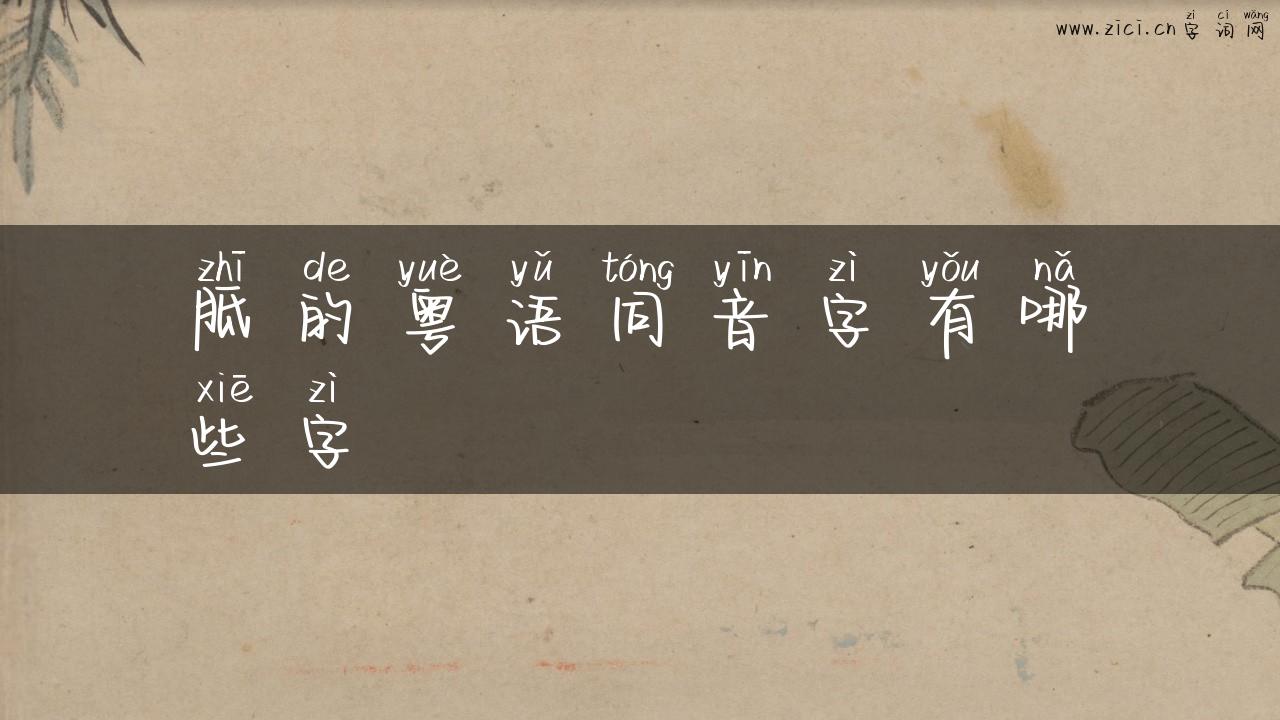 zì cí wǎng
www.zici.cn 字 词 网
zhī de yuè yǔ tóng yīn zì yǒu nǎ
胝 的 粤 语 同 音 字 有 哪
xiē zì
些 字